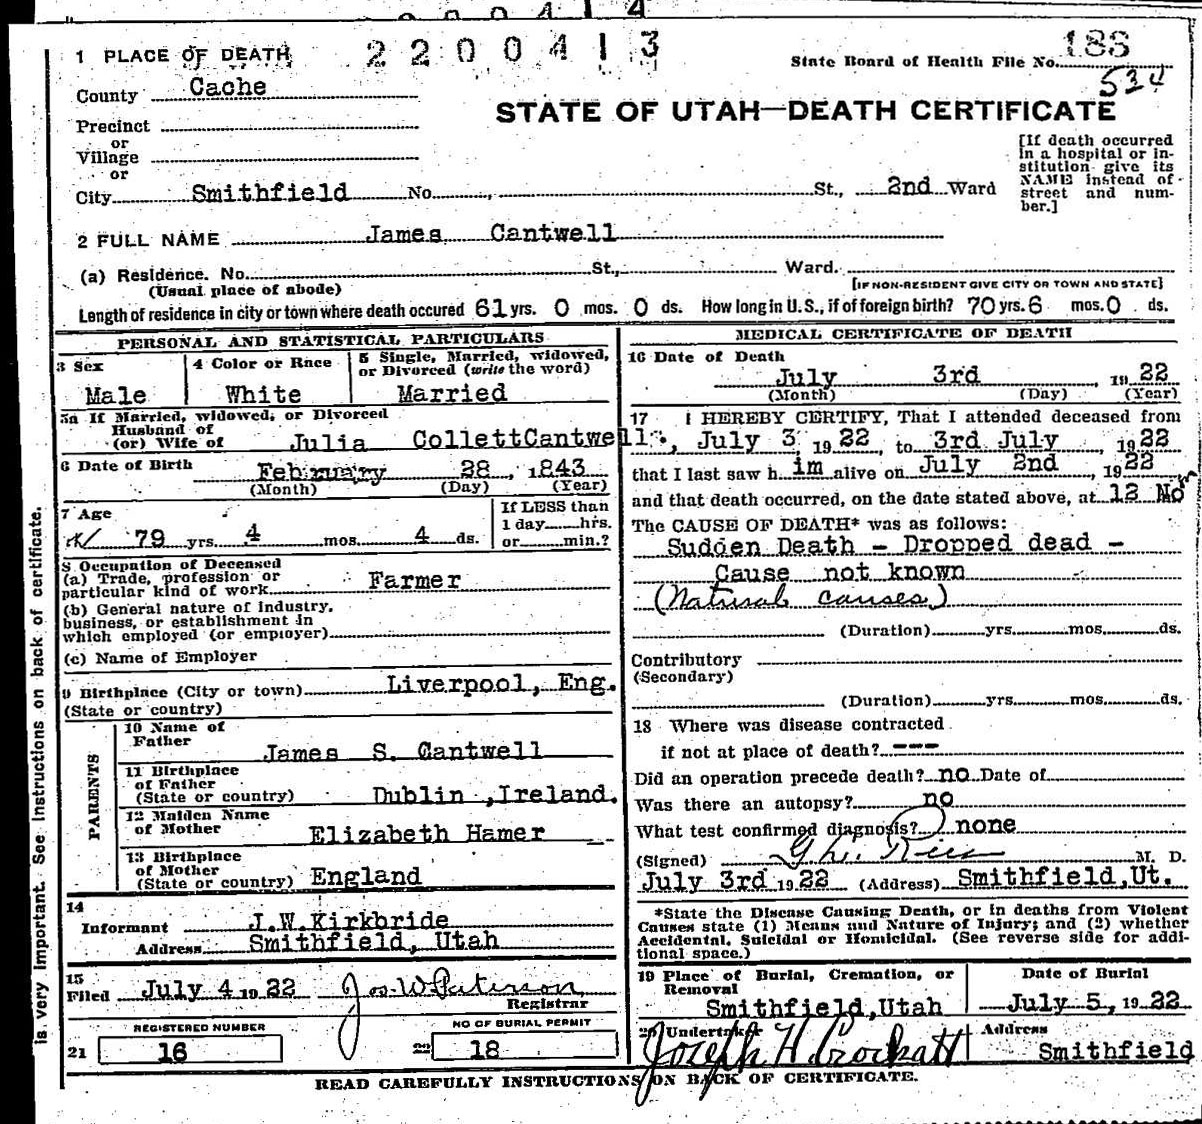 2200413
1 PLACE OF DEATH
State Board of Health File No. 188
534
County Cache
STATE OF UTAH—DEATH CERTIFICATE
Precinct
or
Village
or
City Smithfield No. St., 2nd Ward
[If death occurred in a hospital or institution give its NAME instead of street and number.]
2 FULL NAME James Cantwell
(a) Residence. No. St., Ward.
(Usual place of abode) [IF NON-RESIDENT GIVE CITY OR TOWN AND STATE]
Length of residence in city or town where death occured 61 yrs. 0 mos. 0 ds. How long in U.S., if of foreign birth? 70 yrs. 6 mos. 0 ds.
PERSONAL AND STATISTICAL PARTICULARS
3 Sex Male
4 Color or Race White
5 Single, Married, widowed, or Divorced (write the word) Married
5a If Married, widowed, or Divorced
Husband of
(or) Wife of Julia Collett Cantwell.
6 Date of Birth February 28, 1843
(Month) (Day) (Year)
7 Age 79 yrs. 4 mos. 4 ds.
If LESS than
1 day hrs.
or min.?
8 Occupation of Deceased
(a) Trade, profession or
particular kind of work Farmer
(b) General nature of industry,
business, or establishment in
which employed (or employer)
(c) Name of Employer
9 Birthplace (City or town) Liverpool, Eng.
(State or country)
PARENTS
10 Name of
Father James S. Cantwell
11 Birthplace
of Father
(State or country) Dublin, Ireland.
12 Maiden Name
of Mother Elizabeth Hamer
13 Birthplace
of Mother
(State or country) England
14
Informant J.W.Kirkbride
Address Smithfield, Utah
15
Filed July 4 1922 Jos W Peterson
Registrar
REGISTERED NUMBER
21 16
NO OF BURIAL PERMIT
22 18
MEDICAL CERTIFICATE OF DEATH
16 Date of Death
July 3rd 1922
(Month) (Day) (Year)
17 I HEREBY CERTIFY, That I attended deceased from
July 3 1922, to 3rd July, 1922
that I last saw him alive on July 2nd, 1922
and that death occurred, on the date stated above, at 12 Nom
The CAUSE OF DEATH* was as follows:
Sudden Death - Dropped dead -
Cause not known
(Natural causes)
(Duration) yrs. mos. ds.
Contributory
(Secondary)
(Duration) yrs. mos. ds.
18 Where was disease contracted
if not at place of death? ---
Did an operation precede death? no Date of
Was there an autopsy? no
What test confirmed diagnosis? none
(Signed) M. D.
July 3rd 1922 (Address) Smithfield, Ut.
*State the Disease Causing Death, or in deaths from Violent
Causes state (1) Means and Nature of Injury; and (2) whether
Accidental, Suicidal or Homicidal. (See reverse side for additional space.)
19 Place of Burial, Cremation, or
Removal
Smithfield, Utah
Date of Burial
July 5, 1922
20 Undertaker Joseph H Crockatt
Address
Smithfield
READ CAREFULLY INSTRUCTIONS ON BACK OF CERTIFICATE.
is very important. See instructions on back of certificate.